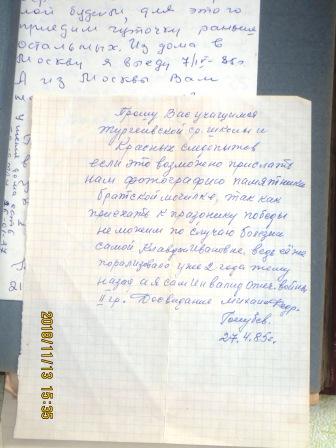 мой будем, для этого
приедим чуточку раньше
остальных. Из дома в
Москву я выеду 7/IV-86г
А из Москвы Вам
Прошу Вас учащимся
ср. школы и
Красных следопытов
если это возможно прислать
нам фотографию памятника
братской могилке, так как
приехать к празднику победы
не можим по случаю болезни
самой Клавдии Ивановне, ведь ей же
парализвало уже 2 года тому
назад и я сам инвалид Отеч. войны
II гр. Досвидание Михаил Федр.
Голубев.
27.4.85г.
21
2018/11/13 15:35